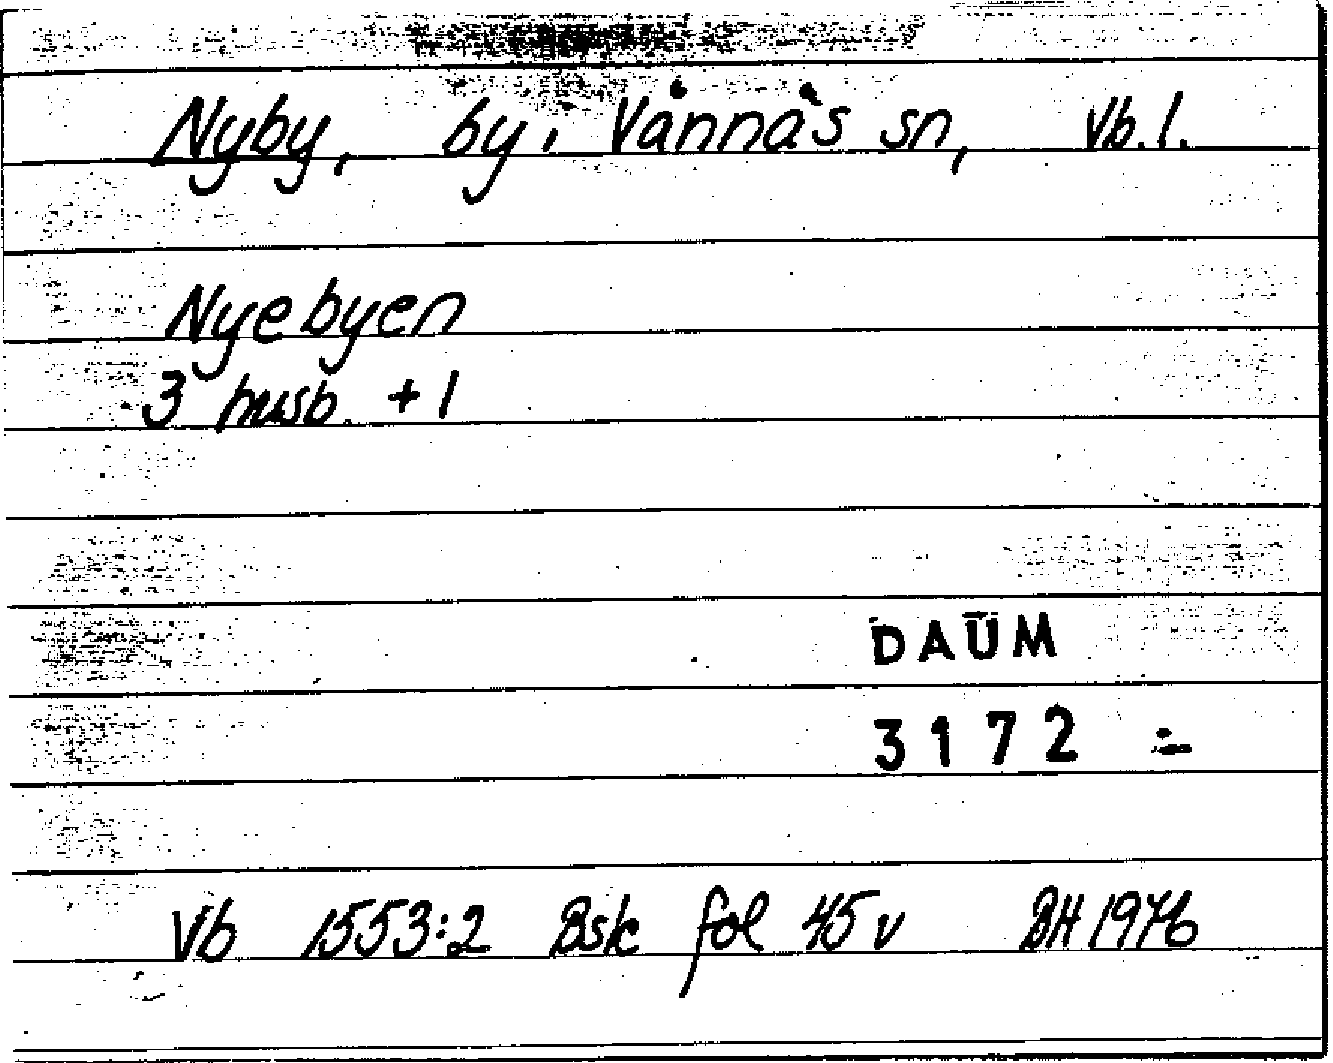 Nyby, by, Vännäs sn, Vb. l.
Nyebyen
3 husb. + 1
DAUM
3172
Vb 1553:2 Bsk fol 45 v BH 1976